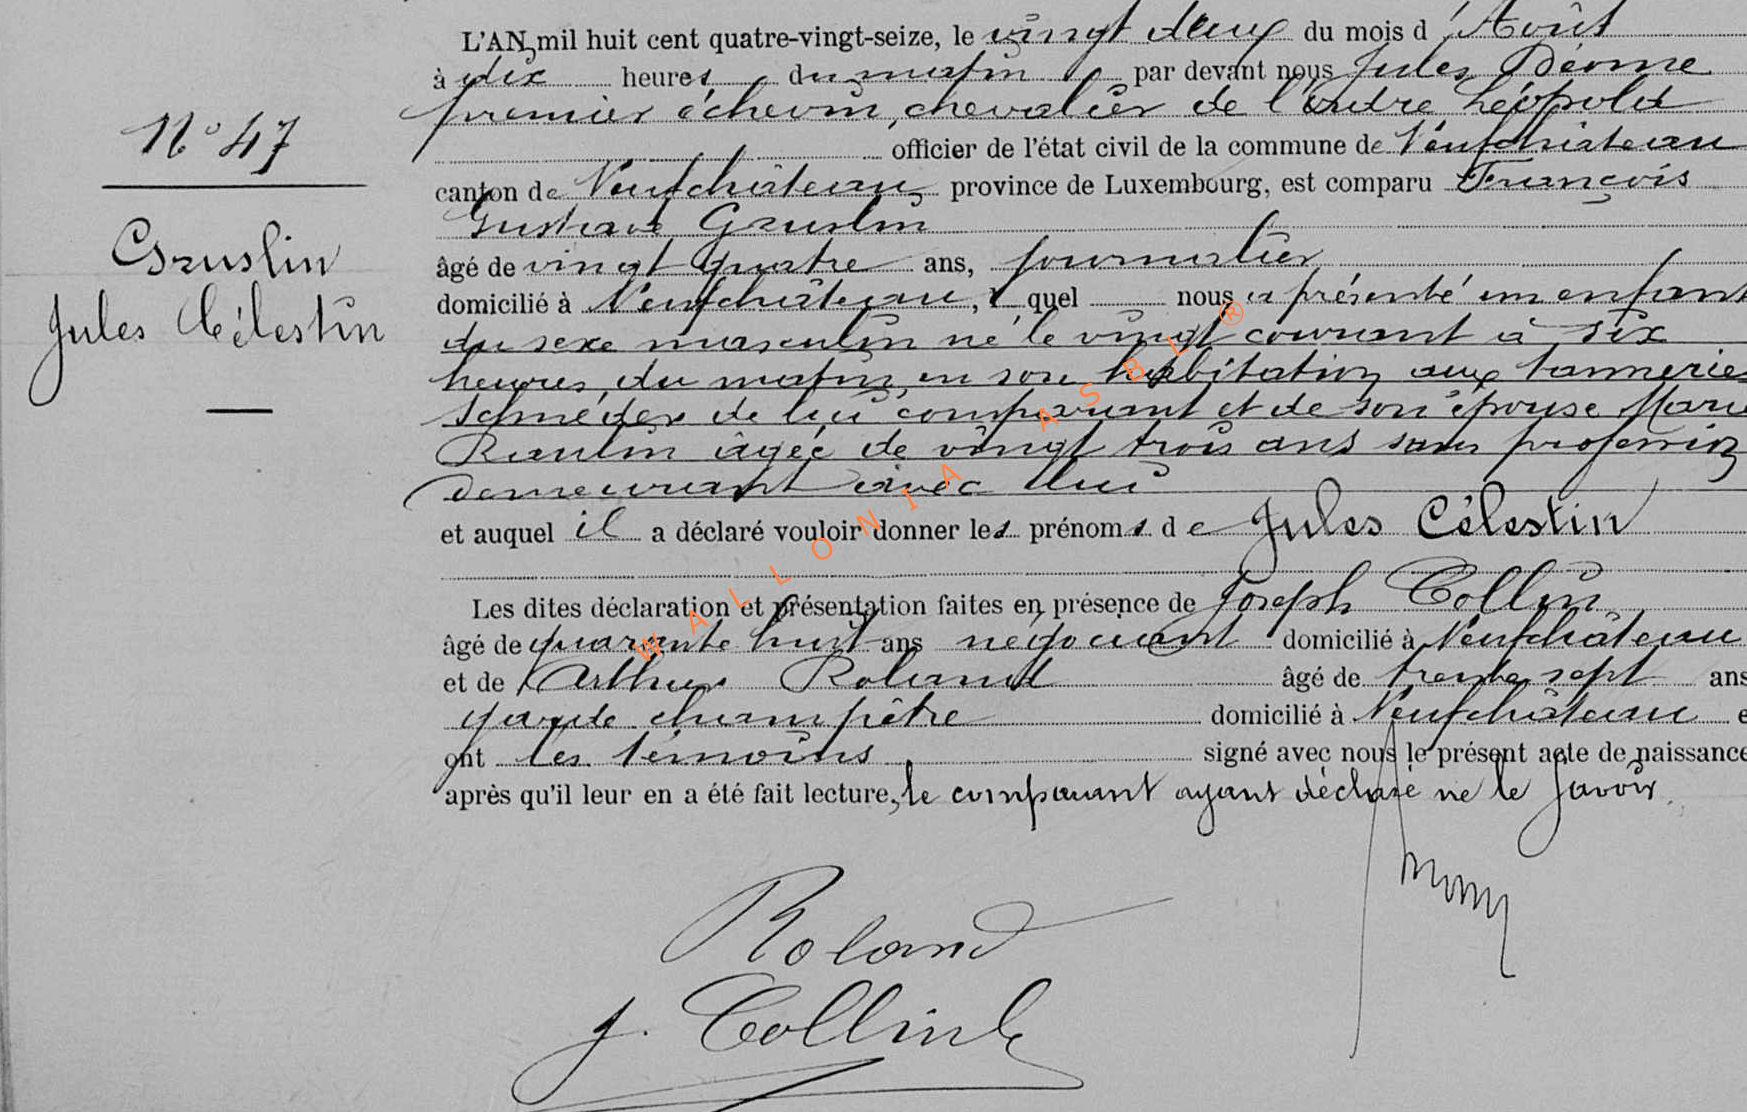 N° 47
Gruslin
Jules Célestin
L'AN mil huit cent quatre-vingt-seize, le vingt deux du mois d'Août
à dix heures du matin par devant nous Jules
premier échevin, chevalier de l'ordre Léopold
officier de l'état civil de la commune de Neufchâteau
canton de Neufchâteau province de Luxembourg, est comparu François
Gustave Gruslin
âgé de vingt quatre ans, journalier
domicilié à Neufchâteau, l quel nous a présenté un enfant
du sexe masculin né le vingt courant à six
heures du matin en son habitation aux tanneries
de lui comparant et de son épouse Marie
Raulin âgée de vingt trois ans sans profession
demeurant avec lui
et auquel il a déclaré vouloir donner les prénoms de Jules Célestin
Les dites déclaration et présentation faites en présence de Joseph Collin
âgé de quarante huit ans négociant domicilié à Neufchâteau
et de Arthur Roland âgé de trente sept ans
garde champêtre domicilié à Neufchâteau e
ont les témoins signé avec nous le présent acte de naissance
après qu'il leur en a été fait lecture, le comparant ayant déclaré ne le savoir.
Roland
J. Collin
WALLONIA ASBL ®